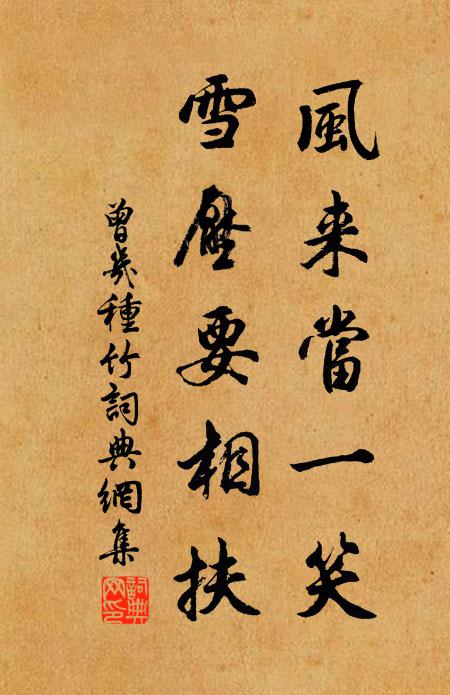 風来當一笑
雪壓要相扶
曾幾種竹詞典網集
詞典网印